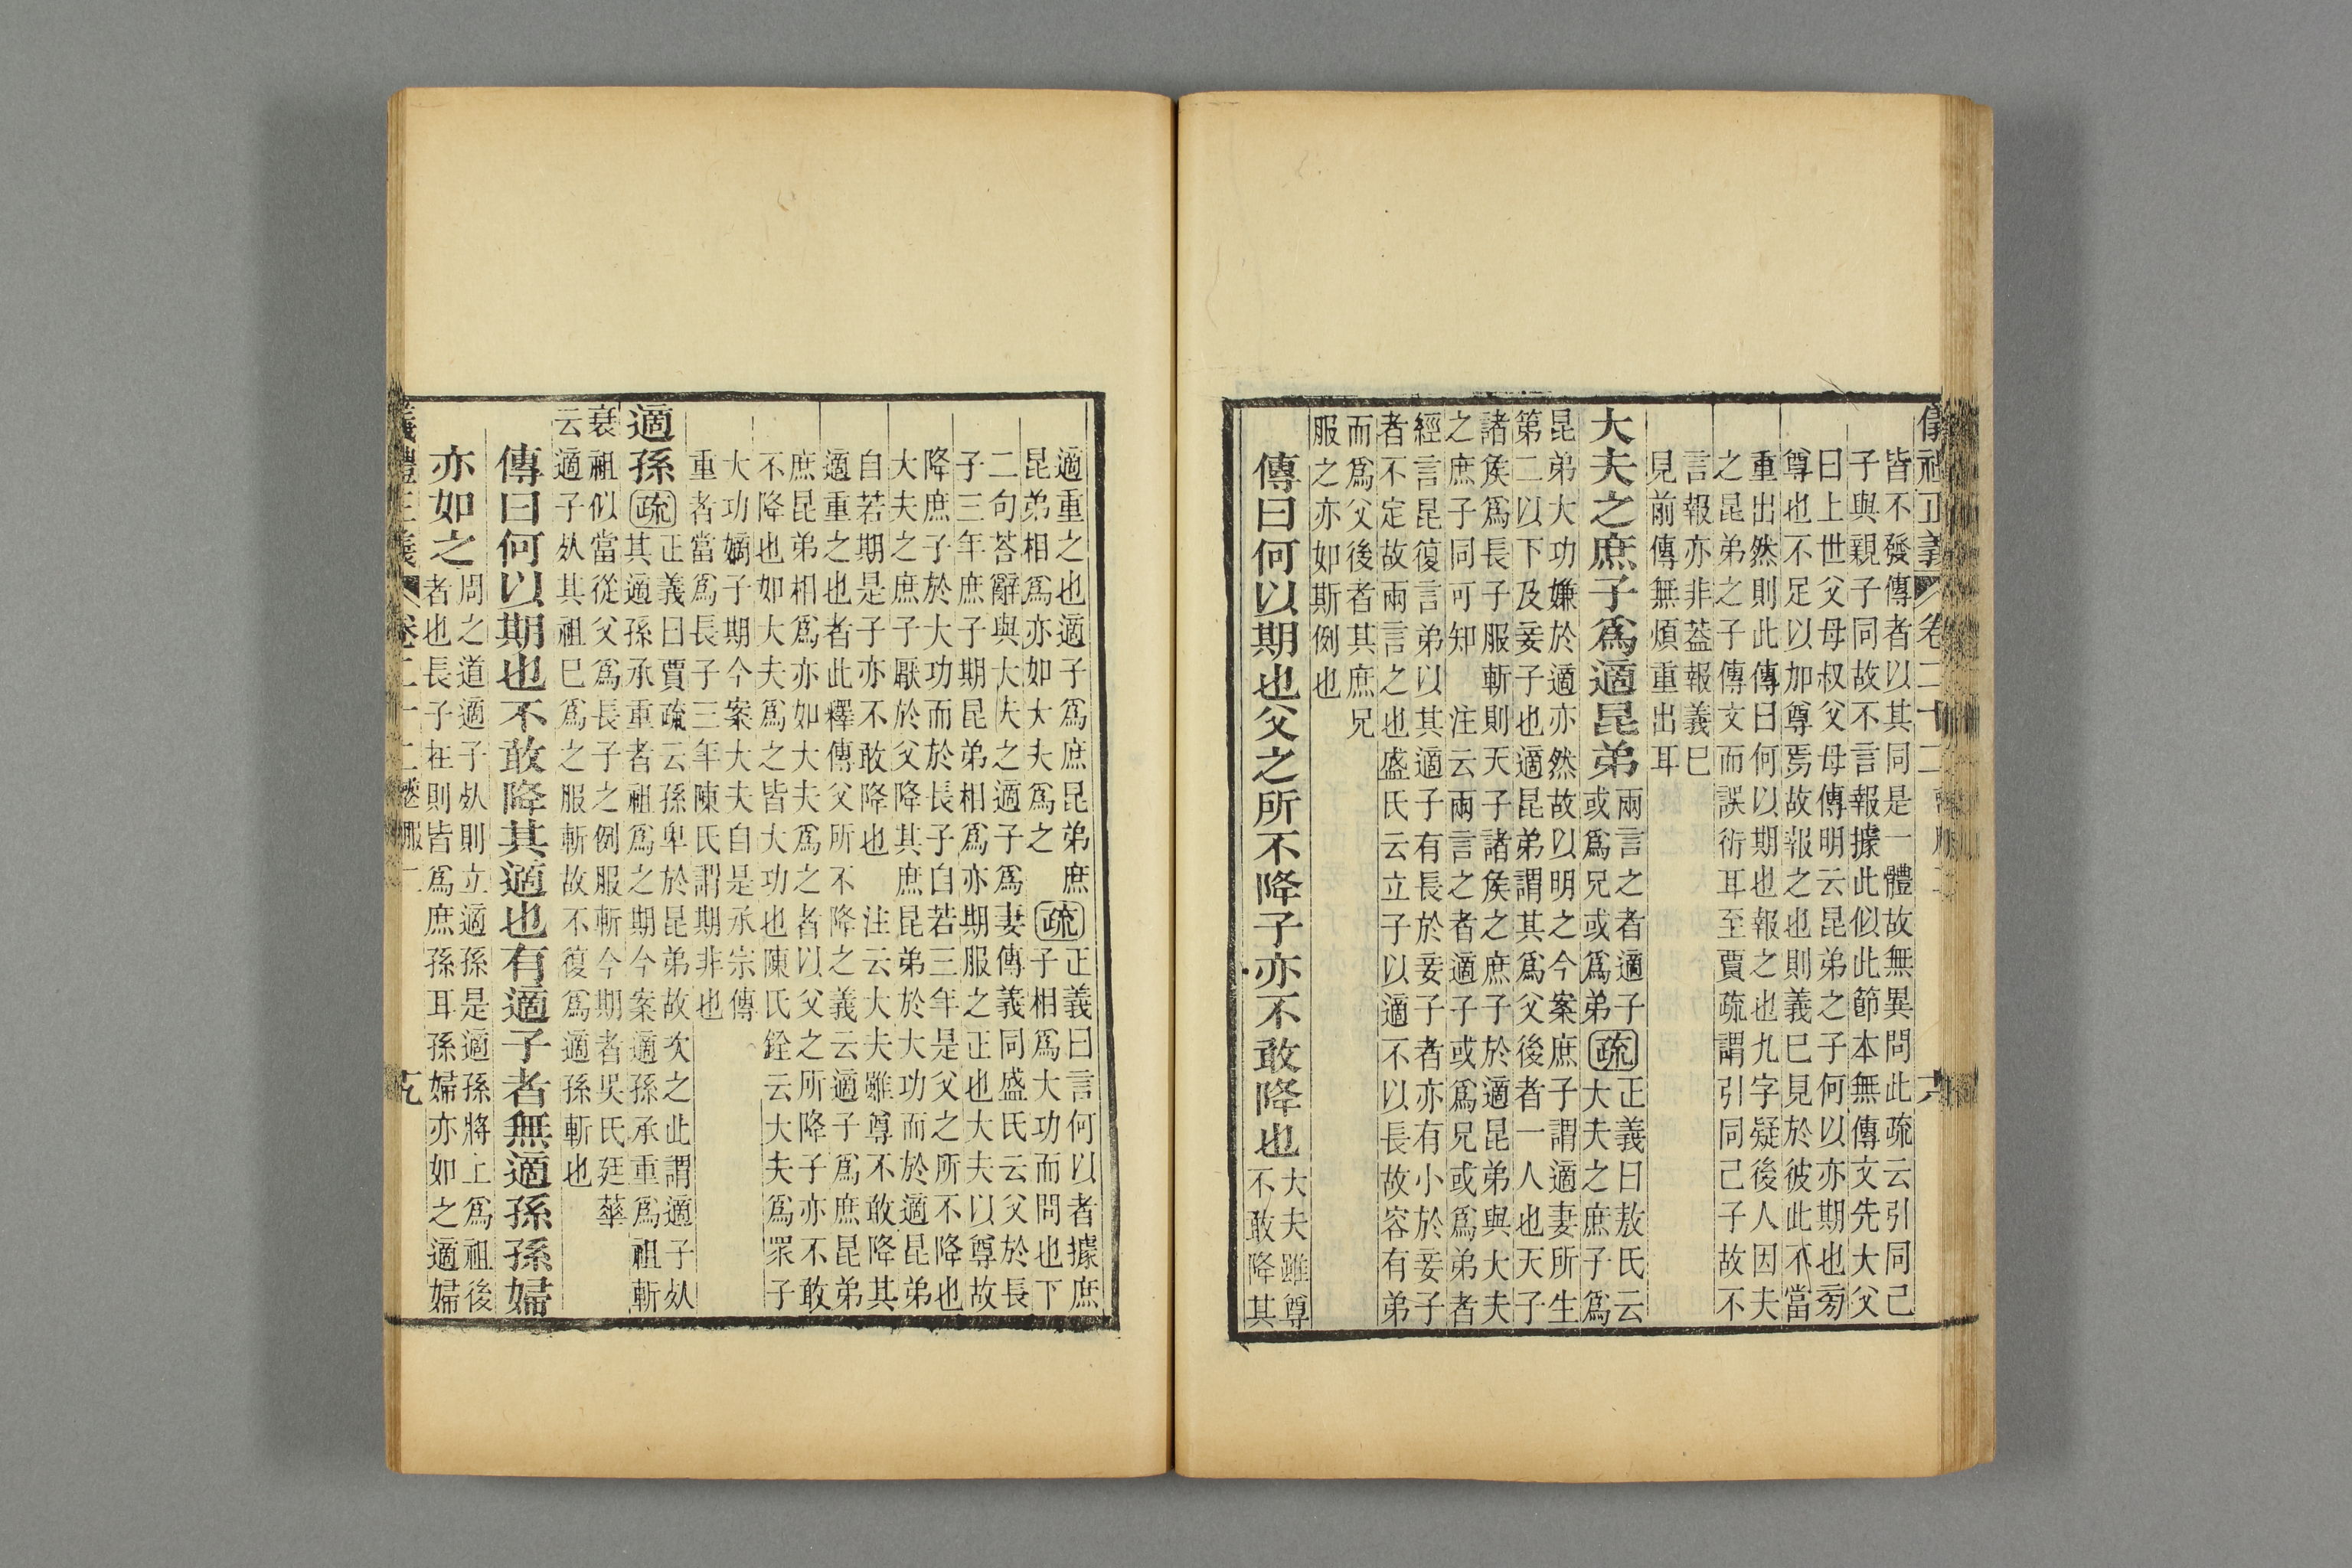 皆不發傳者以其同是一體故無異問此疏云引同己
子與親子同故不言報據此似此節本無傳文先大父
曰上世父母叔父母傳明云昆弟之子何以亦期也旁
尊也不足以加尊焉故報之也則義已見於彼此不當
重出然則此傳曰何以期也報之也九字疑後人因夫
之昆弟之子傳文而誤衍耳至賈疏謂引同己子故不
言報亦非葢報義已
見前傳無煩重出耳
大夫之庶子爲適昆弟
兩言之者適子
或爲兄或爲弟
疏
正義曰敖氏云
大夫之庶子爲
昆弟大功嫌於適亦然故以明之今案庶子謂適妻所生
第二以下及妾子也適昆弟謂其爲父後者一人也天子
諸矦爲長子服斬則天子諸矦之庶子於適昆弟與大夫
之庶子同可知 注云兩言之者適子或爲兄或爲弟者
經言昆復言弟以其適子有長於妾子者亦有小於妾子
者不定故兩言之也盛氏云立子以適不以長故容有弟
而爲父後者其庶兄
服之亦如斯例也
傳曰何以期也父之所不降子亦不敢降也
大夫雖尊
不敢降其
適重之也適子爲庶昆弟庶
昆弟相爲亦如大夫爲之
疏
正義曰言何以者據庶
子相爲大功而問也下
二句荅辭與大夫之適子爲妻傳義同盛氏云父於長
子三年庶子期昆弟相爲亦期服之正也大夫以尊故
降庶子於大功而於長子自若三年是父之所不降也
大夫之庶子厭於父降其庶昆弟於大功而於適昆弟
自若期是子亦不敢降也 注云大夫雖尊不敢降其
適重之也者此釋傳父所不降之義云適子爲庶昆弟
庶昆弟相爲亦如大夫爲之者以父之所降子亦不敢
不降也如大夫爲之皆大功也陳氏銓云大夫爲眾子
大功嫡子期今案大夫自是承宗傳
重者當爲長子三年陳氏謂期非也
適孫
疏
正義曰賈疏云孫卑於昆弟故次之此謂適子𣦸
其適孫承重者祖爲之期今案適孫承重爲祖斬
衰祖似當從父爲長子之例服斬今期者吳氏廷華
云適子𣦸其祖已爲之服斬故不復爲適孫斬也
傳曰何以期也不敢降其適也有適子者無適孫孫婦
亦如之
周之道適子𣦸則立適孫是適孫將上爲祖後
者也長子在則皆爲庶孫耳孫婦亦如之適婦